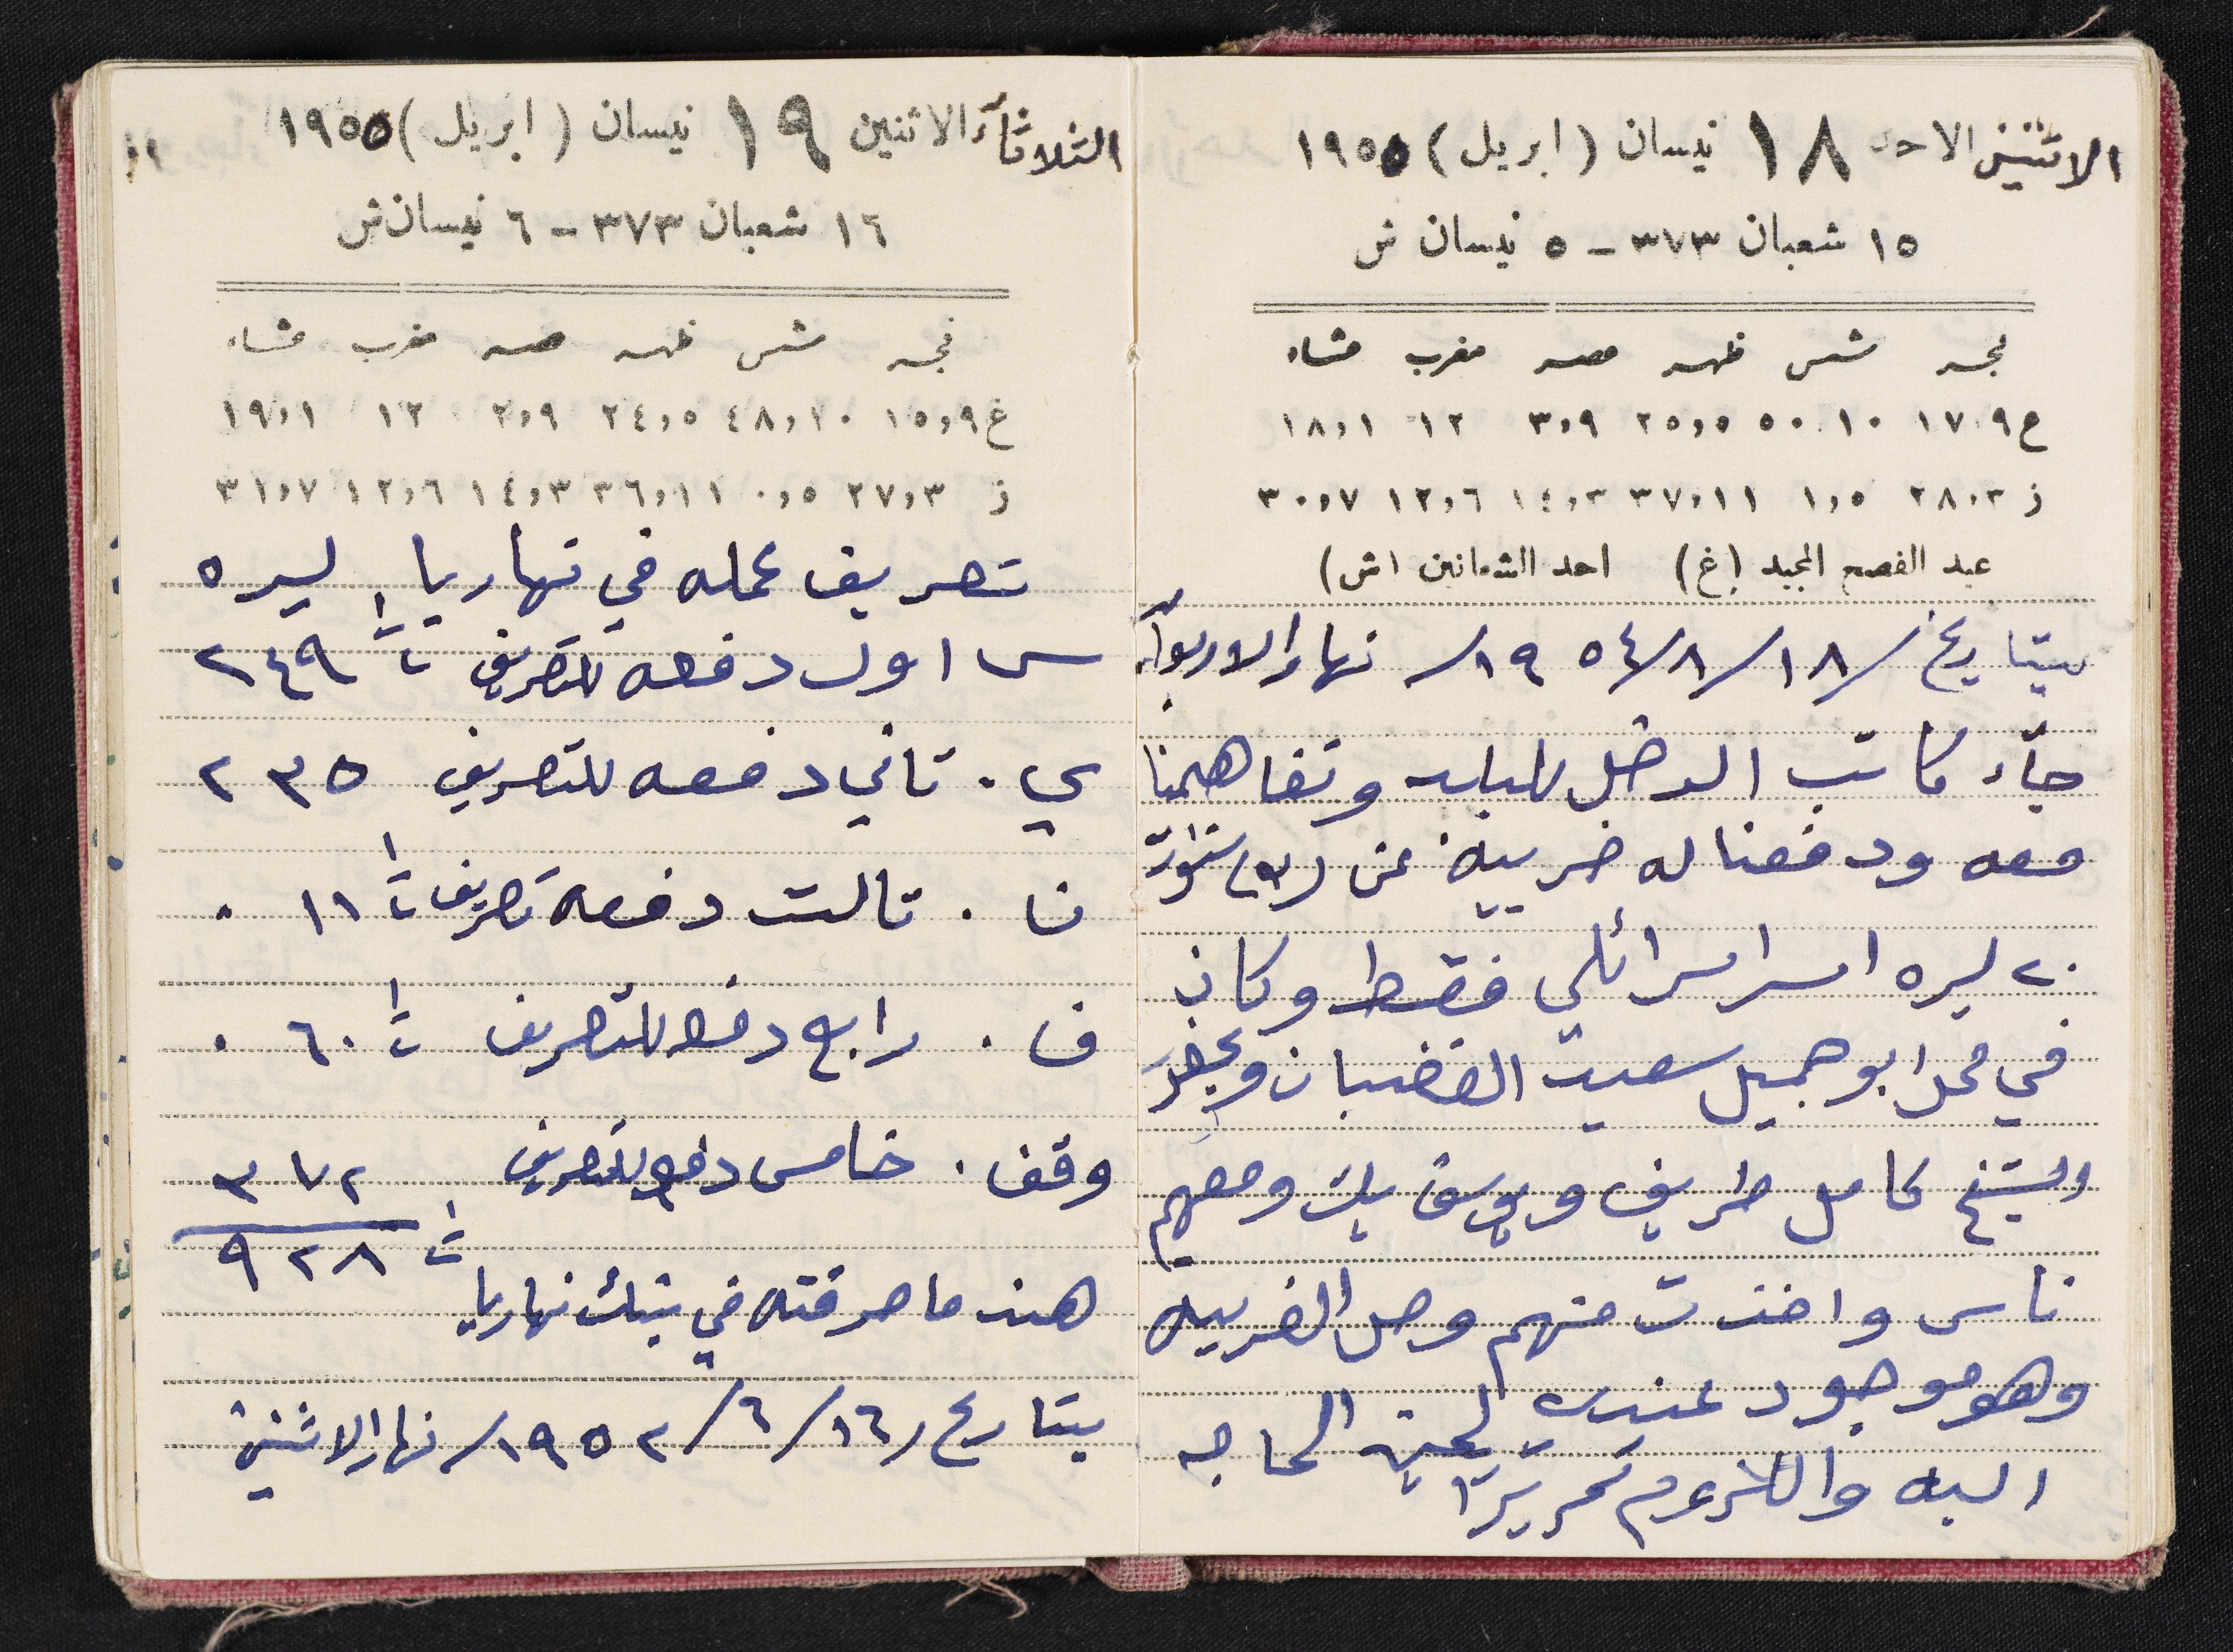 الاثنين الاحد ١٨ نيسان (ابريل) ١٩٥٥
١٥ شعبان ٣٧٣ - ٥ نيسان ش
فجر شمس ظهر عصر مغرب عشاء
غ ١٧،٩ ٥٠،١٠ ٢٥،٥ ٣،٩ ١٢ ١٨،١
ز ٢٨،٣ ١،٥ ٣٧،١١ ١٤،٣ ١٢،٦ ٣٠،٧
عيد الفصح المجيد (غ) احد الشعانين (ش)
بتاريخ ١٨/٨/١٩٥٤ نهار الاربعآء
جآء كاتب الدخل للبلد وتفاهمنا
معه ودفعنا له ضريبة عن (٣) سنوات
٢٠ ليره اسرائلي فقط وكان
في محل ابو جميل سعيد الغضبان وبحضر
الشيخ كامل طريف ويوسف بك ومعهم
ناس واخذت منهم وصل الضريبه
وهو موجود عندي لحين الحاجه
اليه واللزوم تحريرًا
الثلاثآء الاثنين ١٩ نيسان (ابريل) ١٩٥٥
١٦ شعبان ٣٧٣ - ٦ نيسان ش
فجر شمس ظهر عصر مغرب عشاء
غ ١٥،٩ ٤٨،١٠ ٢٤،٥ ٢،٩ ١٢ ١٩،١
ز ٢٧،٣ ٠،٥ ٣٦،١١ ١٤،٣ ١٢،٦ ٣١،٧
تصريف عمله في نهاريا ليره
س اول دفعه للتصريف ٢٤٩
ي. تاني دفعه للتصريف ٢٣٥
نا. تالت دفعه تصريف ١١.
ف. رابع دفعه للتصريف ٦٠.
وقف. خامس دفعه للتصريف ٣٧٢
٩٢٨
هذه ما صرفته في بنك نهاريا
بتاريخ ١٦/٦/١٩٥٢ نهار الاثنين